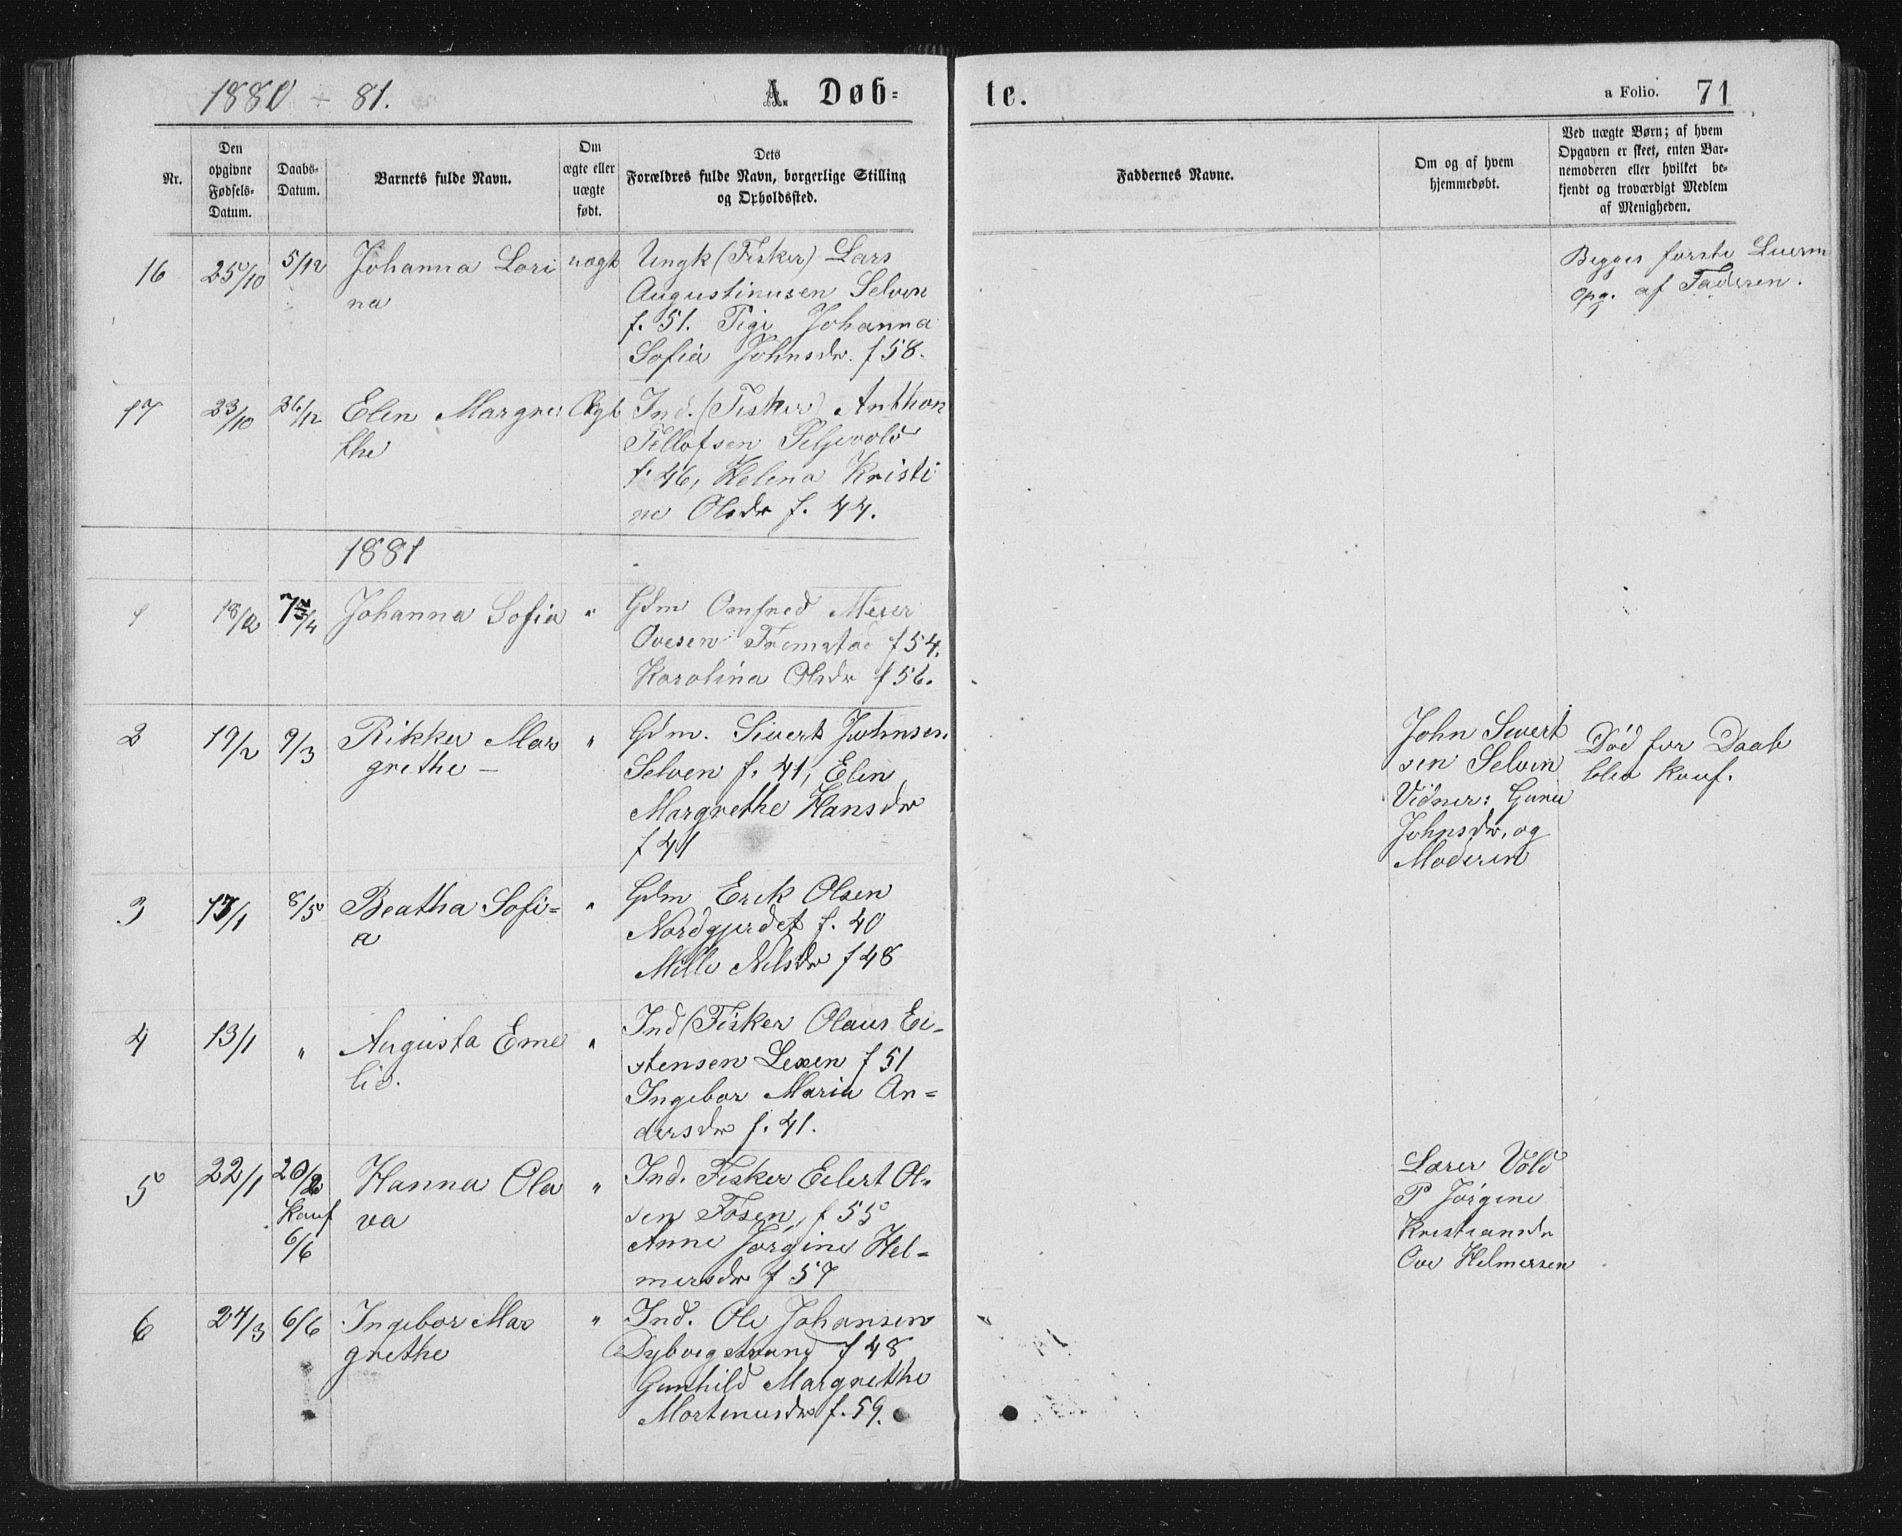 1880 - 81.
A. Døb-
te.
a Folio. 71
Nr.
Den opgivne Fødsels-Datum.
Daabs-Datum.
Barnets fulde Navn.
Om ægte eller uægte født.
Dets Forældres fulde Navn, borgerlige Stilling og Opholdssted.
Faddernes Navne.
Om og af hvem hjemmedøbt.
Ved uægte Børn; af hvem Opgaven er skeet, enten Barnemoderen eller hvilket bekjendt og troværdigt Medlem af Menigheden.
16 25/10 5/12 Johanna Lori uægt Ungk (Fisker) Lars
na Augustinusen Selven
f. 51. Pige Johanna
Sofia Johnsdr. f 58.
Begges første
Opg. af Faderen.
17 23/10 26/12 Elen Margre Ægt Ind. (Fisker) Anthon
the Tellofsen Seljevold
f. 46, Helena Kristi
ne Olsdr f. 44.
1881
1 18/2 /4 Johanna Sofia " Gdm Arnfred Meier
Ovesen Fremstad f 54.
Karolina Olsdr f 56.
2 19/2 9/3 Rikke Mar " Gdm. Sivert Johnsen
grethe - Selven f. 41, Elen
Margrethe Hansdr
f 41
John Sivert
sen Selven
Vidner: Guru
Johnsdr, og
Moderen
Død før Daab
blev konf.
3 17/1 8/5 Beatha Sofi- " Gdm Erik Olsen
a Nordgjerdet f. 40
Mille Nilsdr f 48
4 13/1 " Augusta Eme " Ind (Fisker Olaus Ei-
lie. stensen Lexen f 51
Ingebor Maria An-
dersdr f. 41.
5 22/1 20/2 Hanna Ola " Ind. Fisker Eilert Ol-
konf va sen Fosen, f 55
6/6 Anne Jørgine Hel-
mersdr f 57
Lærer Vold
P Jørgine
Kristiansdr
Ove Helmersen
6 24/3 6/6 Ingebor Mar " Ind. Ole Johansen
grethe Dybvigstrand f 48
Gunhild Margrethe
Mortinusdr f. 59.